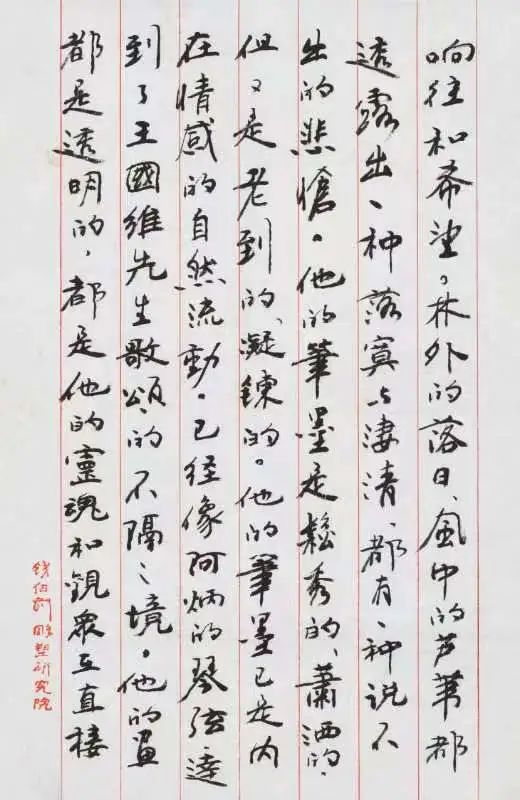 响往和希望。林外的落日、風中的芦苇都
透露出一种落寞与凄清、都有一种説不
出的悲愴。他的筆墨是鬆秀的、蕭洒的、
但又是老到的、凝鍊的。他的筆墨已是内
在情感的自然流動。已经像阿炳的琴弦達
到了王國維先生歌頌的不隔之境。他的畫
都是透明的，都是他的靈魂和觀衆互直接
钱伯刚雕塑研究院